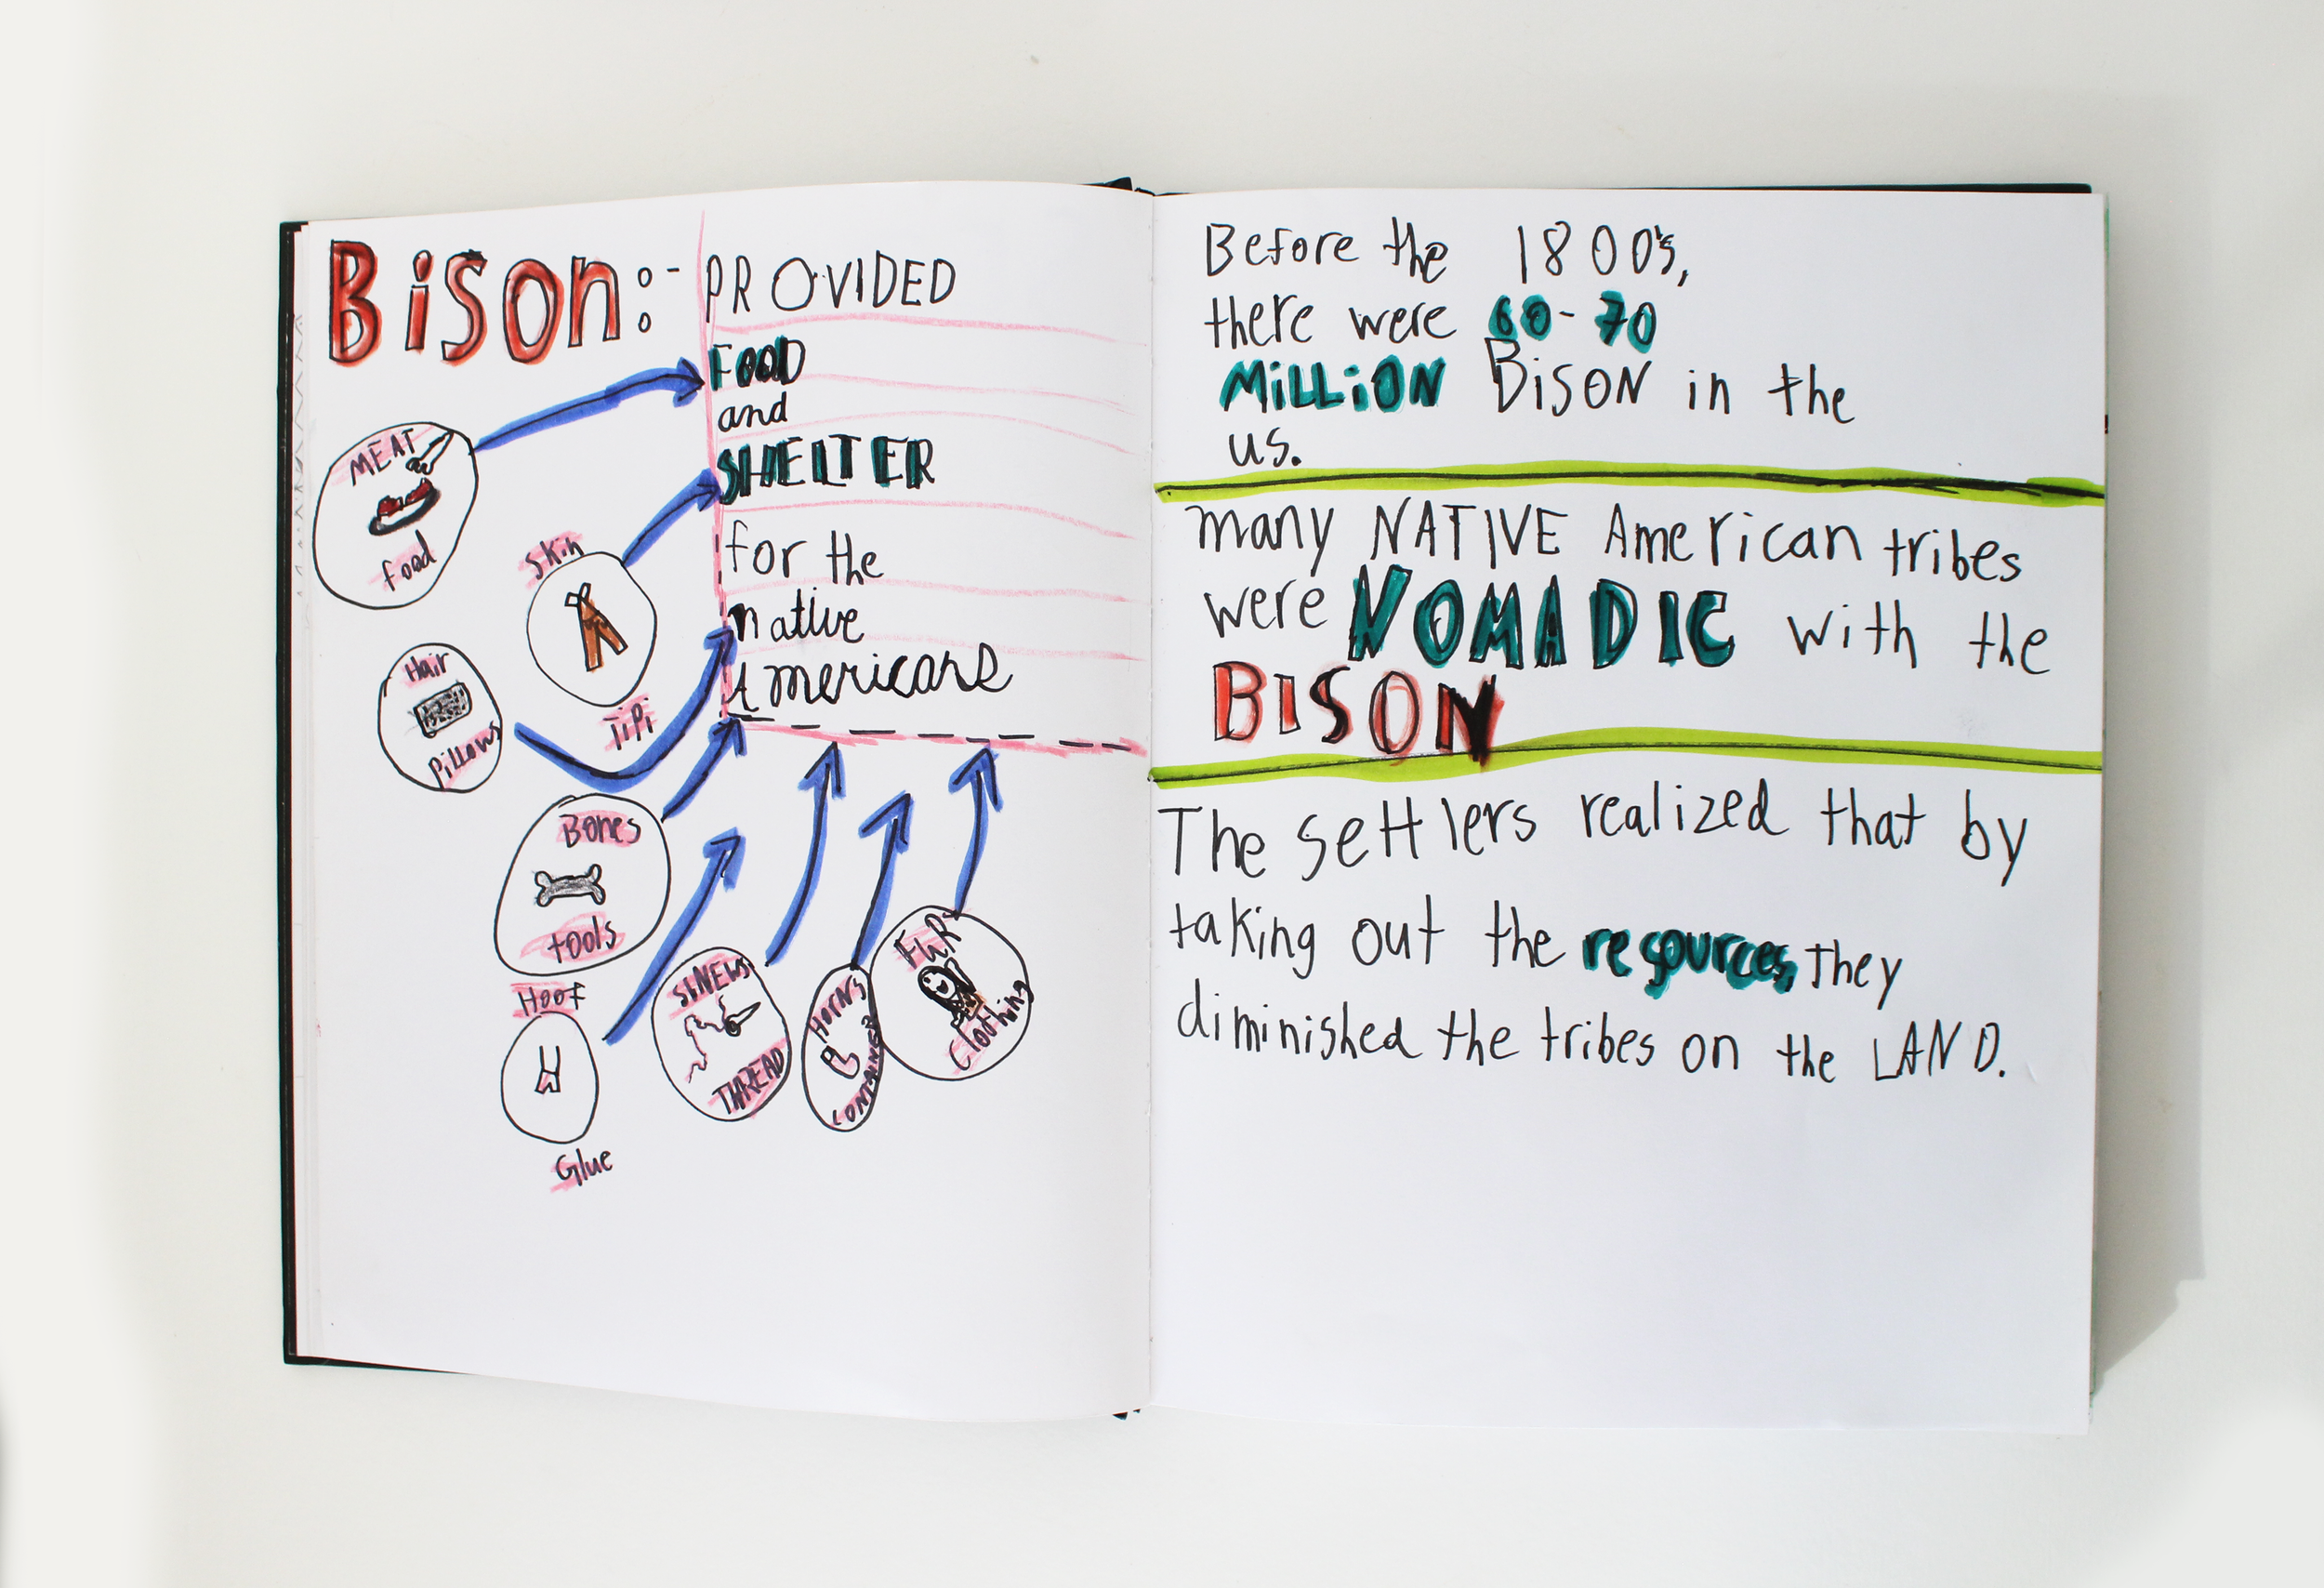 Bison:- PROVIDED
FOOD
and
SHELTER
for the
native
Americans
MEAT
food
Skin
TiPi
Hair
Pillows
Bones
tools
Hoof
Glue
SiNEWS
THREAD
HORNS
CONTAINER
FUR
Clothing
Before the 1800's,
there were 60-70
MiLLiON BisoN in the
us.
many NATIVE American tribes
were NOMADIC with the
BISON
The settlers realized that by
taking out the resources, they
diminished the tribes on the LAND.